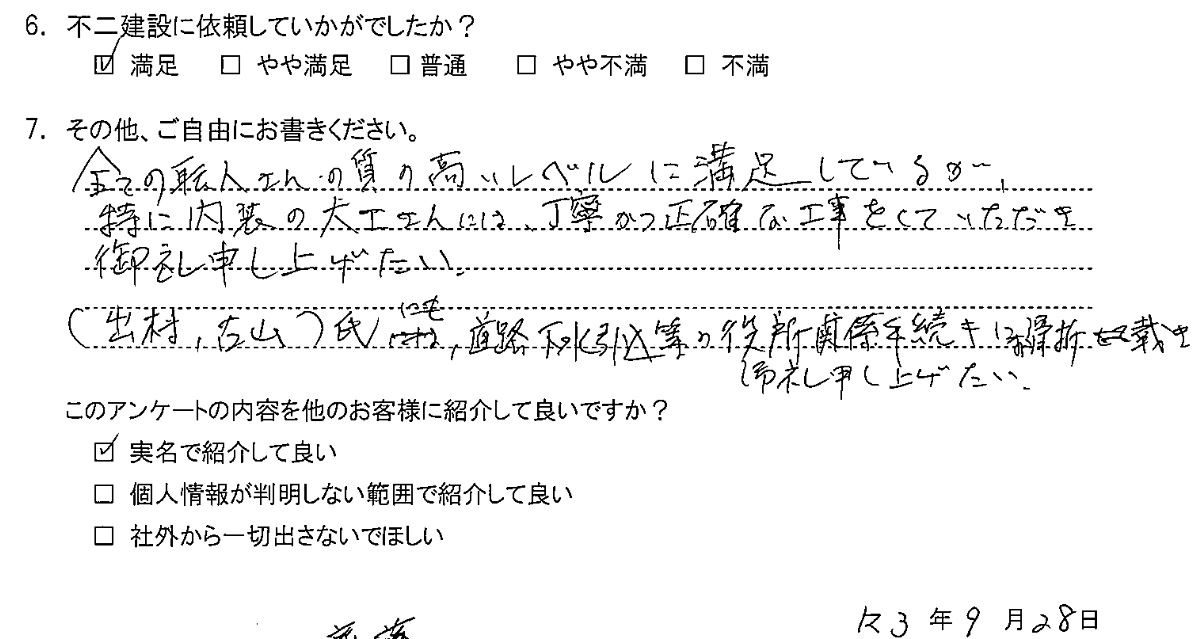 6. 不二建設に依頼していかがでしたか？
☑ 満足 □ やや満足 □ 普通 □ やや不満 □ 不満
7. その他、ご自由にお書きください。
全ての職人さんの質の高いレベルに満足しているが、
特に内装の大工さんには、丁寧かつ正確な工事をしていただき
御礼申し上げたい。
(出村, 古山)氏にも, 道路下水引込等の役所関係手続きに骨折
御礼申し上げたい.
このアンケートの内容を他のお客様に紹介して良いですか？
☑ 実名で紹介して良い
□ 個人情報が判明しない範囲で紹介して良い
□ 社外から一切出さないでほしい
3 年 9 月 28 日